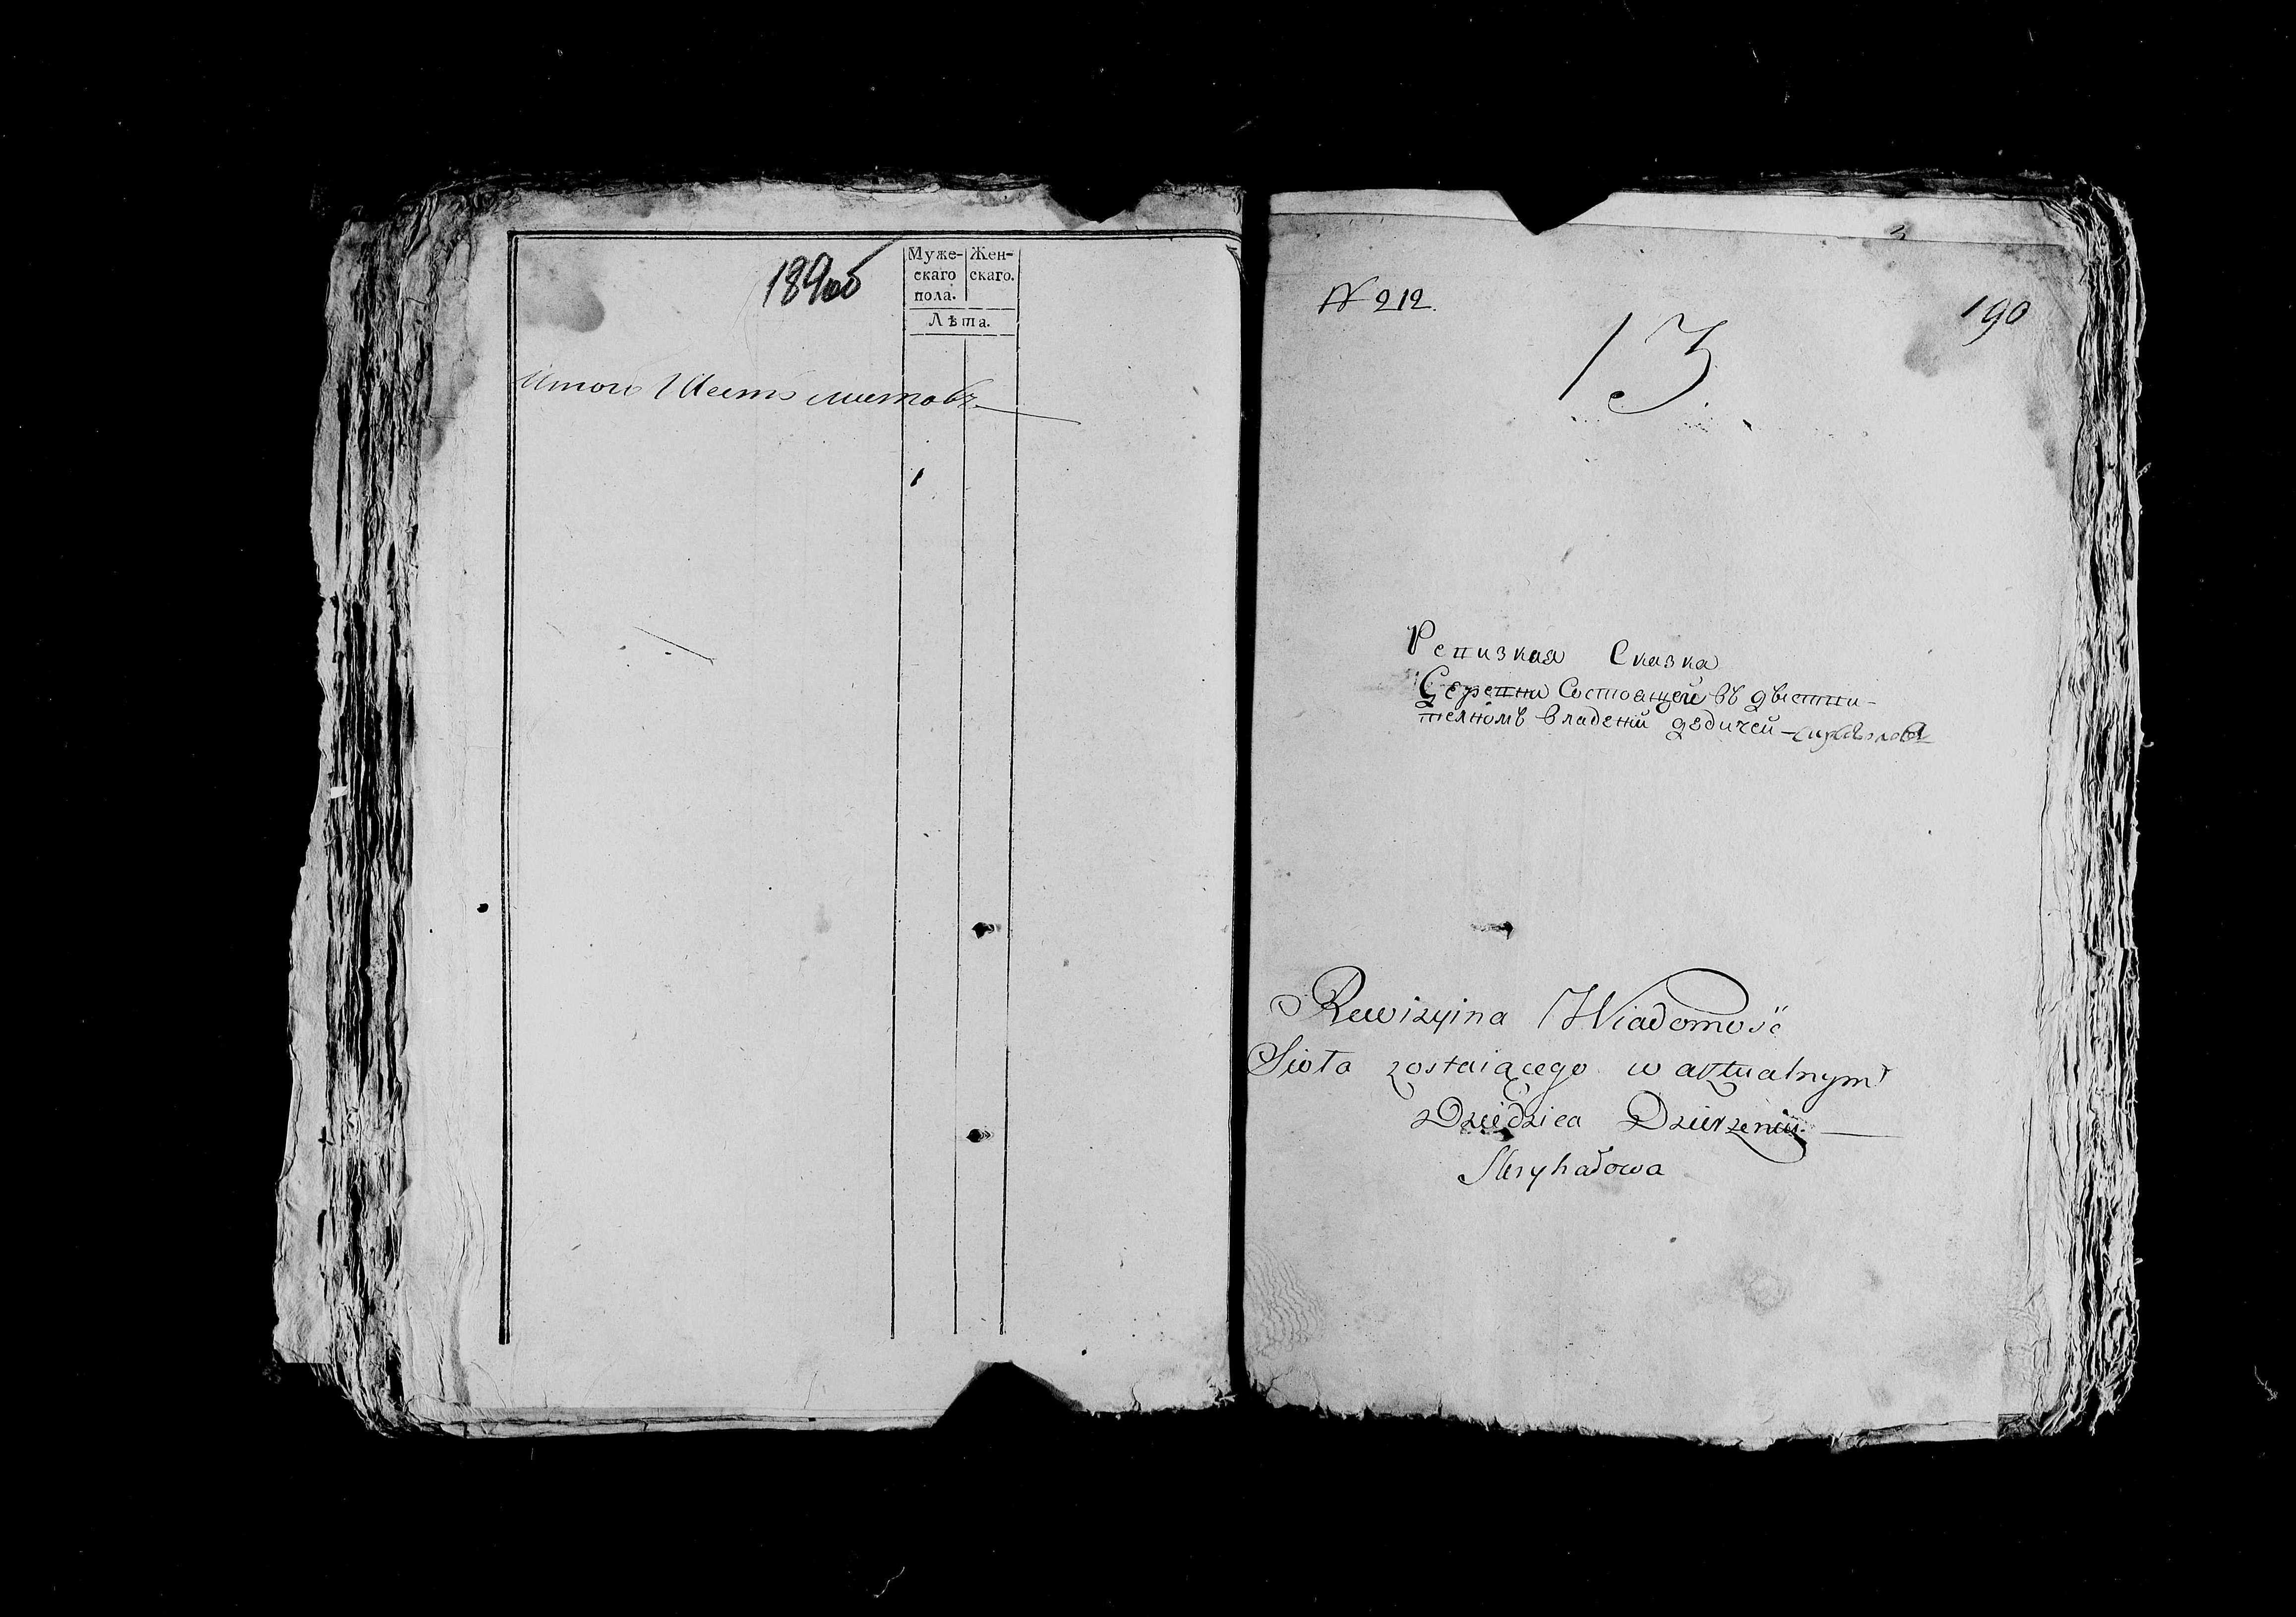 189об
Муже- Жен-
скаго скаго.
пола.
Лѣта.
Итого Шесть листовъ
N 212.
190
13
Ревизкая Сказка
Деревни Состоящей въ действи-
телномъ владении дедичей
Rewizyina Wiadomość
Sioła zostaiącego w aktualnym
Dziedzica Dzierżeniu
Skryhałowa